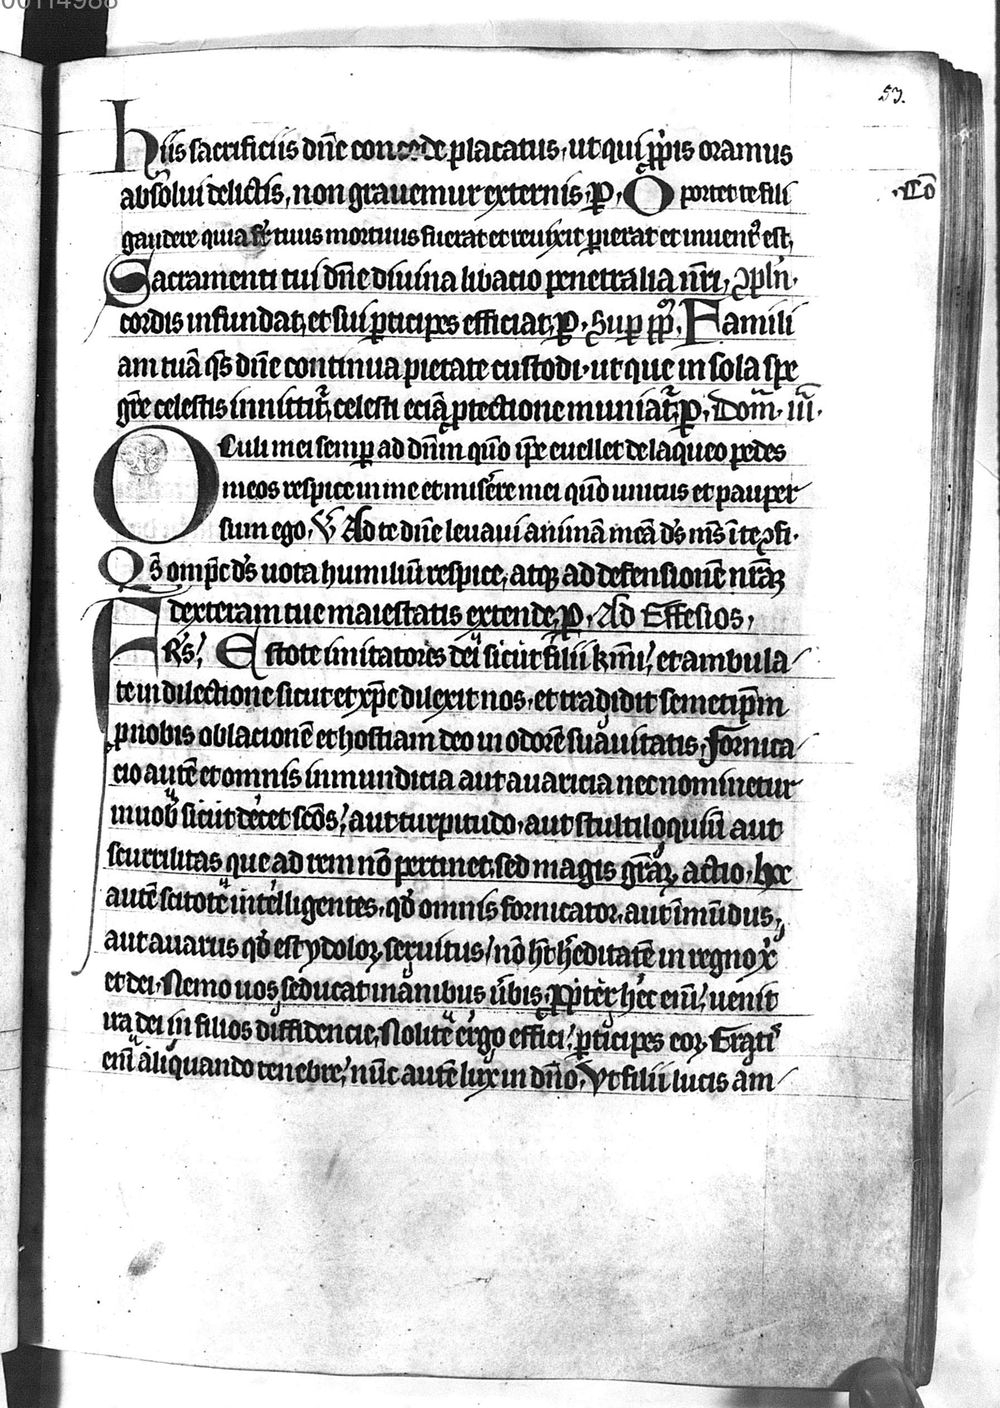 00114988
53.
Hiis sacrificiis dñe concede placatus, ut qui p̱p̱riis oramus
absolui delictis, non grauemur externis, P̱. Oportet te fili
·Cō
gaudere quia fr̄ tuus mortuus fuerat et reuixit perierat et inuent᷒ est,
Sacramenti tui dñe diuina libatio penetralia nr̄i, 
cordis infundat, et sui p̱ticipes efficiat, P̱. Sup̱ pp̄lm. Famili
am tuā qs̄ dñe continua pietate custodi, ut que in sola spe
gr̄e celestis innititr̄, celesti eciā p̱tectione muniatr̄, P̱. Dom̄. iii.
Oculi mei semp̱ ad dñm qm̄ ip̄e euellet de laqueo pedes
meos respice in me et misere mei qm̄ unicus et pauper
sum ego, V̄ Ad te dñe leuaui animā meā ds̄ ms̄ ī te ꝯfi.
Qs̄ omp̄c ds̄ uota humiliū respice, atqꝫ ad defensionē nr̄aꝫ
dexteram tue maiestatis extende, P̱. Ad Effesios,
Fr̄s! Estote imitatores dei sicut filii kr̄mi! et ambula/
te in dilectione sicut et xp̄c dilexit nos, et tradidit semetip̄m
p̱ nobis oblacionē et hostiam deo in odorē suauitatis, Fornica/
cio autē et omnis inmundicia aut auaricia nec nominetur
in uob᷒ sicut decet scōs! aut turpitudo, aut stultiloquiū aut
scurrilitas que ad rem nō pertinet, sed magis gr̄aꝝ actio, hec
autē scitote intelligentes, qd̄ omnis fornicator, aut īmūdus,
aut auarus qd̄ est ydoloꝝ seruitus! nō ht̄ hēditatē in regno xp̄i
et dei. Nemo uos seducat inanibus ūbis, p̱p̱ter hec enī! uenit
ira dei in filios diffidencie, Nolite ergo effici! p̱ticipes eoꝝ. Eratis
enī aliquando tenebre! nūc autē lux in dño, Vt filii lucis am/